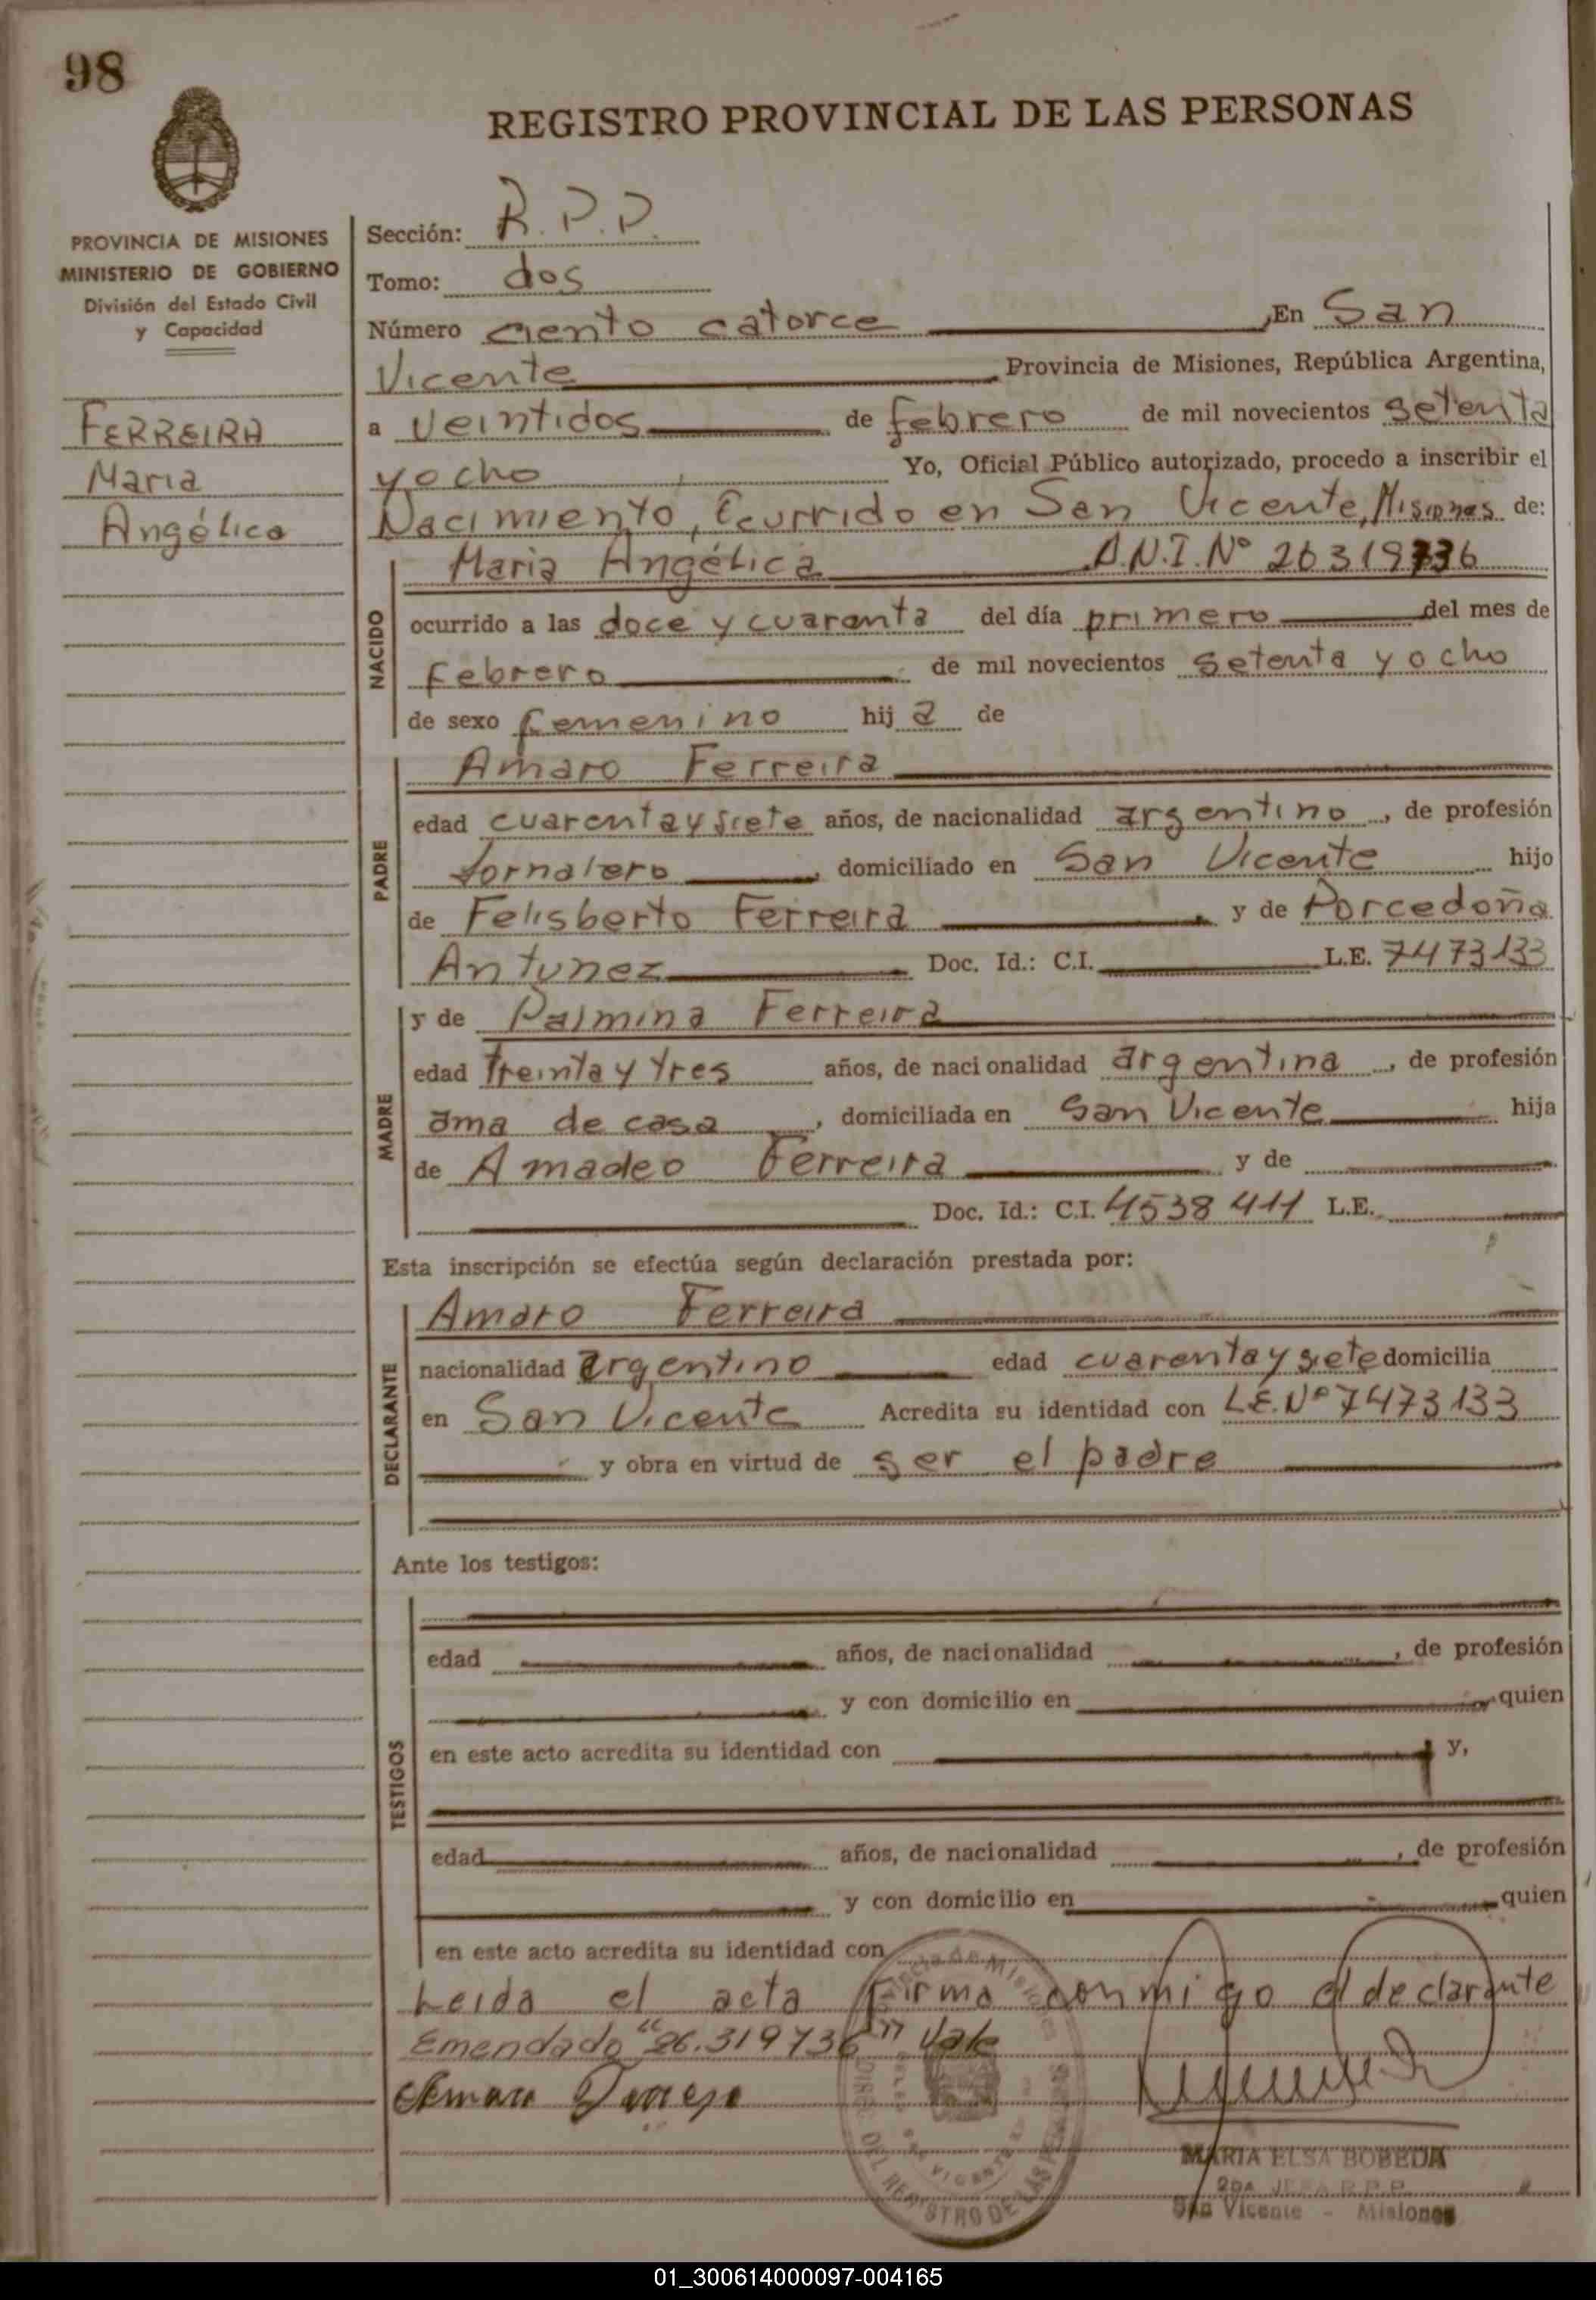 98
REGISTRO PROVINCIAL DE LAS PERSONAS
PROVINCIA DE MISIONES
MINISTERIO DE GOBIERNO
División del Estado Civil
y Capacidad
FERREIRA
Maria
Angélica
Sección: R.P.P.
Tomo: dos
Número ciento catorce, En San
Vicente Provincia de Misiones, República Argentina,
a veintidos de febrero de mil novecientos setenta
y ocho Yo, Oficial Público autorizado, procedo a inscribir el
Nacimiento, Ocurrido en San Vicente, Misiones de:
NACIDO
Maria Angélica D.N.I. Nº 26319736
ocurrido a las doce y cuaranta del día primero del mes de
Febrero de mil novecientos setenta y ocho
de sexo femenino hij a de
PADRE
Amaro Ferreira
edad cuarenta y siete años, de nacionalidad argentino, de profesión
Jornalero, domiciliado en San Vicente hijo
de Felisberto Ferreira y de Porcedoña
Antunez Doc. Id.: C.I. L.E. 7473133
MADRE
y de Palmina Ferreira
edad treinta y tres años, de nacionalidad argentina, de profesión
ama de casa, domiciliada en San Vicente hija
de Amadeo Ferreira y de
Doc. Id.: C.I. 4538411 L.E.
Esta inscripción se efectúa según declaración prestada por:
DECLARANTE
Amaro Ferreira
nacionalidad argentino edad cuarenta y siete domicilia
en San Vicente Acredita su identidad con L.E. Nº 7473133
y obra en virtud de ser el padre
Ante los testigos:
TESTIGOS
edad años, de nacionalidad, de profesión
y con domicilio en quien
en este acto acredita su identidad con y,
edad años, de nacionalidad, de profesión
y con domicilio en quien
en este acto acredita su identidad con
Leida el acta firma conmigo el declarante
Emendado "26.319736" Vale
MARIA ELSA BOBEDA
2DA JEFA R.P.P.
San Vicente - Misiones
01_300614000097-004165